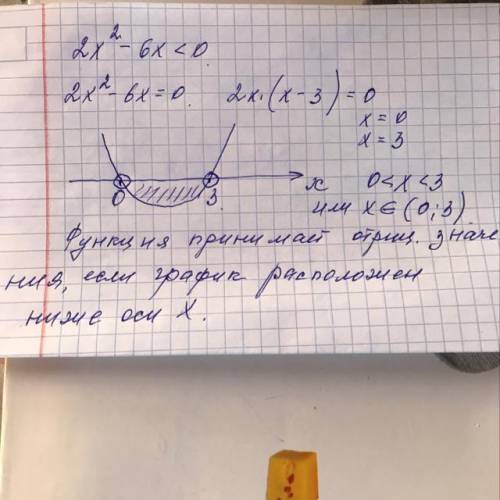 2x² - 6x < 0
2x² - 6x = 0   2x·(x - 3) = 0
x = 0
x = 3
0   3   x   0 < x < 3
или x ∈ (0; 3)
Функция принимает отриц. значе
ния, если график расположен
ниже оси X.